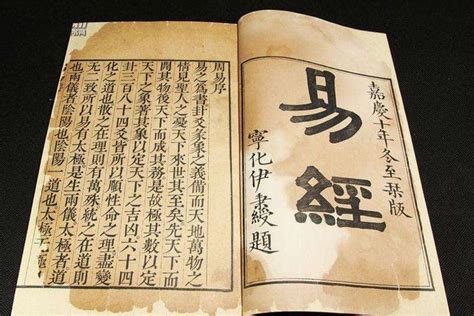 嘉慶十年 冬至栞版
易經
寧化伊秉綬題
周易序
易之為書卦爻彖象之義備而天地萬物之
情見聖人之憂天下來世其至矣先天下而
開其物後天下而成其務是故極其數以定
天下之象著其象以定天下之吉凶六十四
卦三百八十四爻皆所以順性命之理盡變
化之道也散之在理則有萬殊統之在道則
无二致所以易有太極是生兩儀太極者道
也兩儀者陰陽也陰陽一道也太極无極